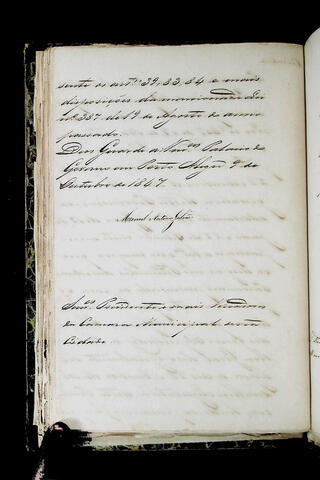 sente os art.os 32, 33, 34 e mais
disposições da mencionada Lei
nº 387 de 19 de Agosto do anno
passado.
Deos Guarde a Vmces Palacio do
Governo em Porto Alegre 9 de
Outubro de 1847.
Manoel Antonio Galvão
Snres Presidente e mais Vereadores
da Camara Municipal desta
Cidade